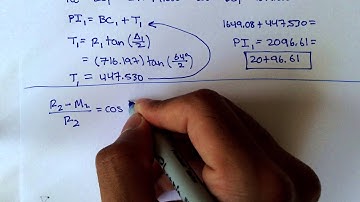 PI₁ = BC₁ + T₁
T₁ = R₁ tan(Δ₁/2)
= (716.197) tan(64°/2)
T₁ = 447.530
1649.08 + 447.530 =
PI₁ = 2096.61 =
20+96.61
R₂ - M₂ / R₂ = cos